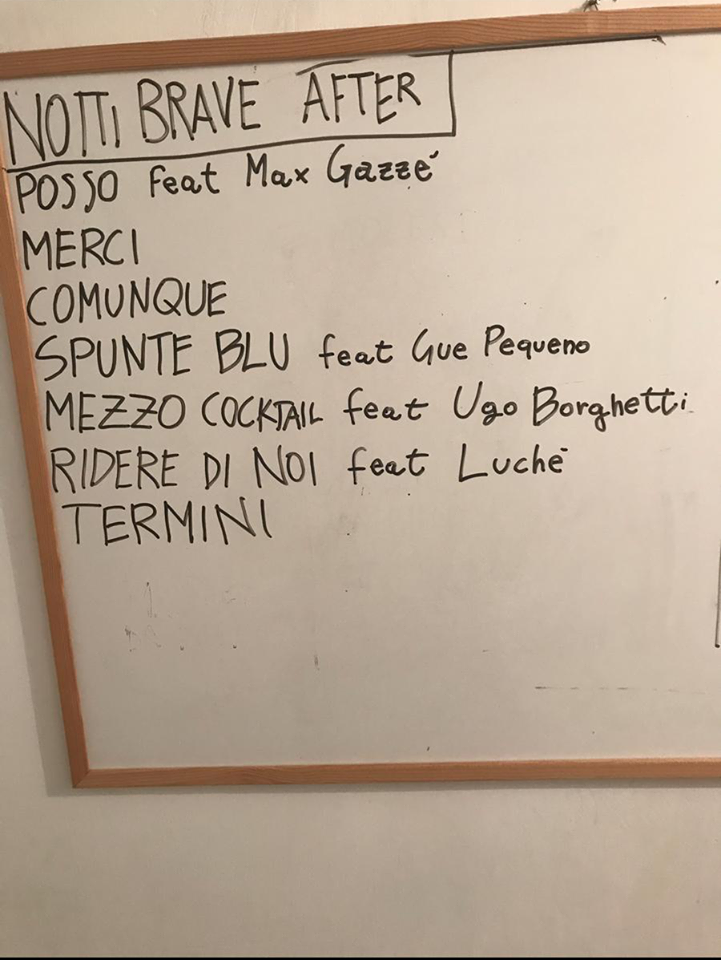 NOTTI BRAVE AFTER
POSSO feat Max Gazzé
MERCI
COMUNQUE
SPUNTE BLU feat Gue Pequeno
MEZZO COCKTAIL feat Ugo Borghetti
RIDERE DI NOI feat Luchè
TERMINI